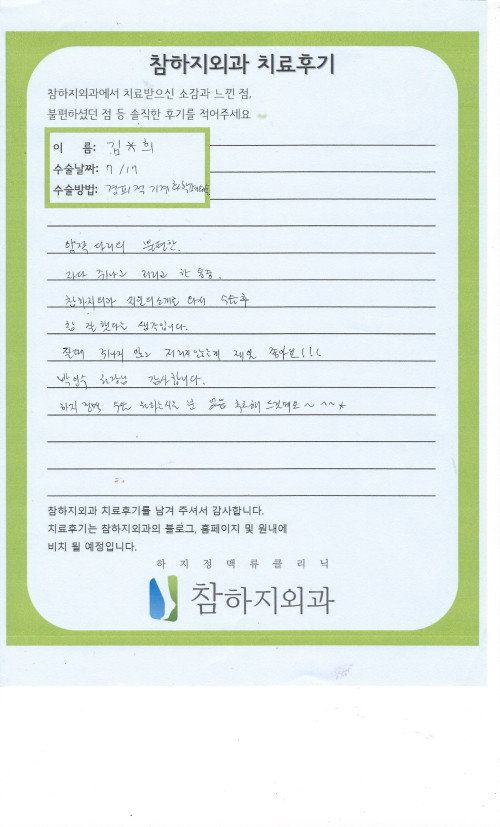 참하지외과 치료후기
참하지외과에서 치료받으신 소감과 느낀 점,
불편하셨던 점 등 솔직한 후기를 적어주세요
이 름: 김*희
수술날짜: 7/19
수술방법: 경피적 기계화학
양쪽 다리의 불편한.
자다 쥐나고 저리고 한
참하지외과 지인의소개로 와서 수술후
참 잘했다고 생각입니다.
잘때 쥐나지 않고 저리지않는게 제일 좋아요!!!
원장님 감사합니다.
하지정맥 수술 원하는사람 분 추천해 드릴께요~ ^^*
참하지외과 치료후기를 남겨 주셔서 감사합니다.
치료후기는 참하지외과의 블로그, 홈페이지 및 원내에
비치 될 예정입니다.
하지정맥류클리닉
참하지외과